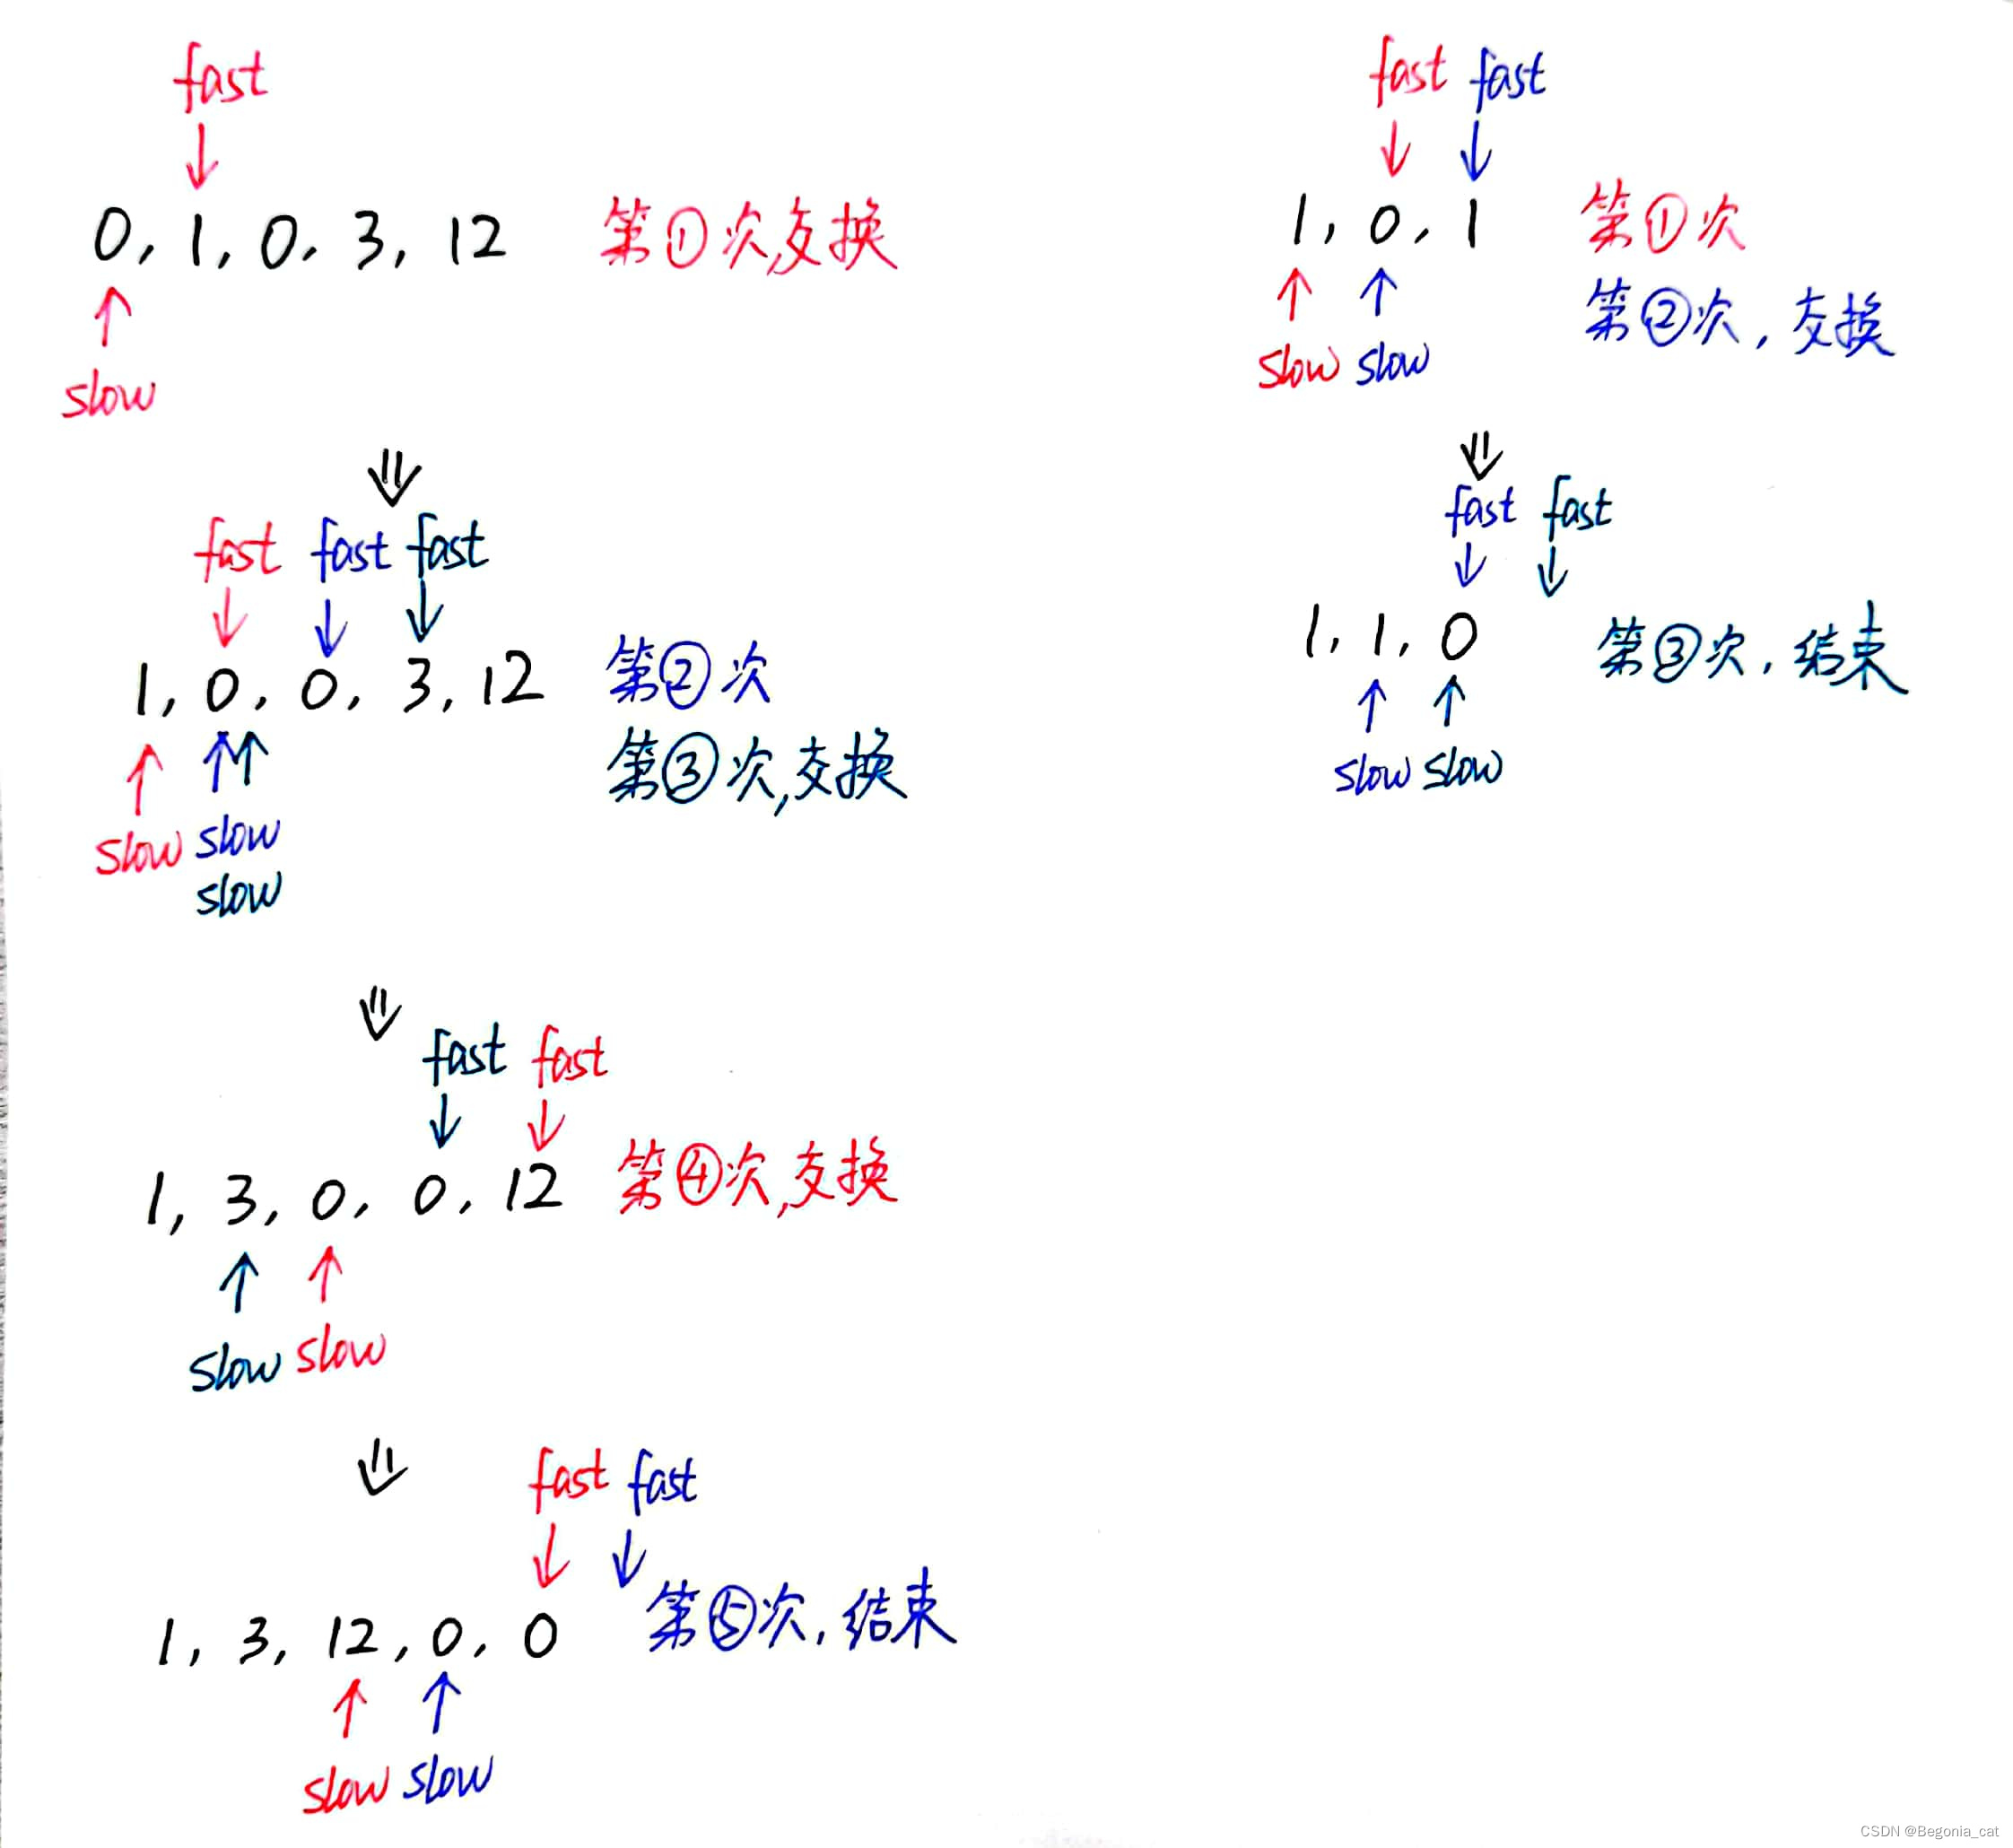 fast
0, 1, 0, 3, 12 第①次,交换
slow
fast fast fast
1, 0, 0, 3, 12 第②次
第③次,交换
slow slow
slow
fast fast
1, 3, 0, 0, 12 第④次,交换
slow slow
fast fast
1, 3, 12, 0, 0 第⑤次,结束
slow slow
fast fast
1, 0, 1 第①次
第②次,交换
slow slow
fast fast
1, 1, 0 第③次,结束
slow slow
CSDN @Begonia_cat